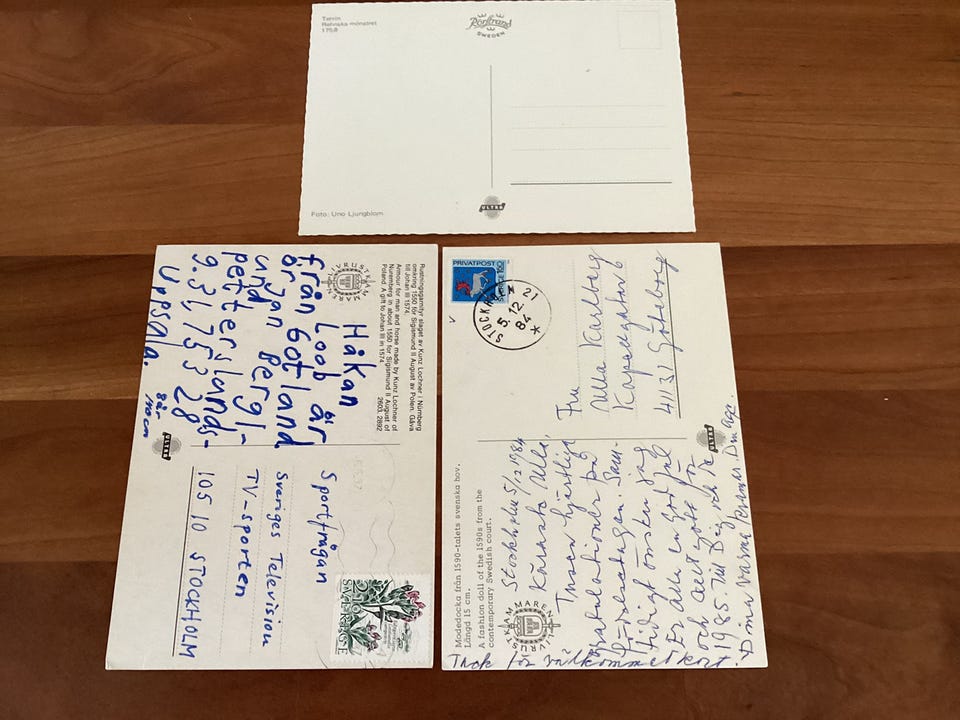 Terrin
Rehnska mönstret
1758
Rörstrand
SWEDEN
Foto: Uno Ljungblom
ULTRA
Rustningsgarnityr slaget av Kunz Lochner i Nürnberg
omkring 1550 för Sigismund II August av Polen. Gåva
till Johan III 1574.
Armour for man and horse made by Kunz Lochner of
Nuremberg in about 1550 for Sigismund II August of
Poland. A gift to Johan III in 1574.
2603, 2892
LIVRUSTKAMMAREN
Håkan
Loob är
från Gotland
Örjan Berg-
lund
petterslands-
9.34.753 28
Uppsala.
8 år
110 cm
ULTRA
Sportfrågan
Sveriges Television
TV-sporten
105 10 STOCKHOLM
SVERIGE
2.10
PRIVATPOST
SVERIGE 160
STOCKHOLM 21
5.12
84
Fru
Ulla Karlberg
Kapellgatan 6
411 32 Göteborg
ULTRA
Modedocka från 1590-talets svenska hov.
Längd 15 cm.
A fashion doll of the 1590s from the
contemporary Swedish court.
LIVRUSTKAMMAREN
Stockholm 5/12 1984
Kärnasta Ulla,
Tusen hjärtliga
gratulationer på
födelsedagen. Sam-
tidigt önskar jag
Er alla en god jul
och allt gott för
1985. Till Dig och
Dina varma kramar. Din
Tack för välkommet kort.